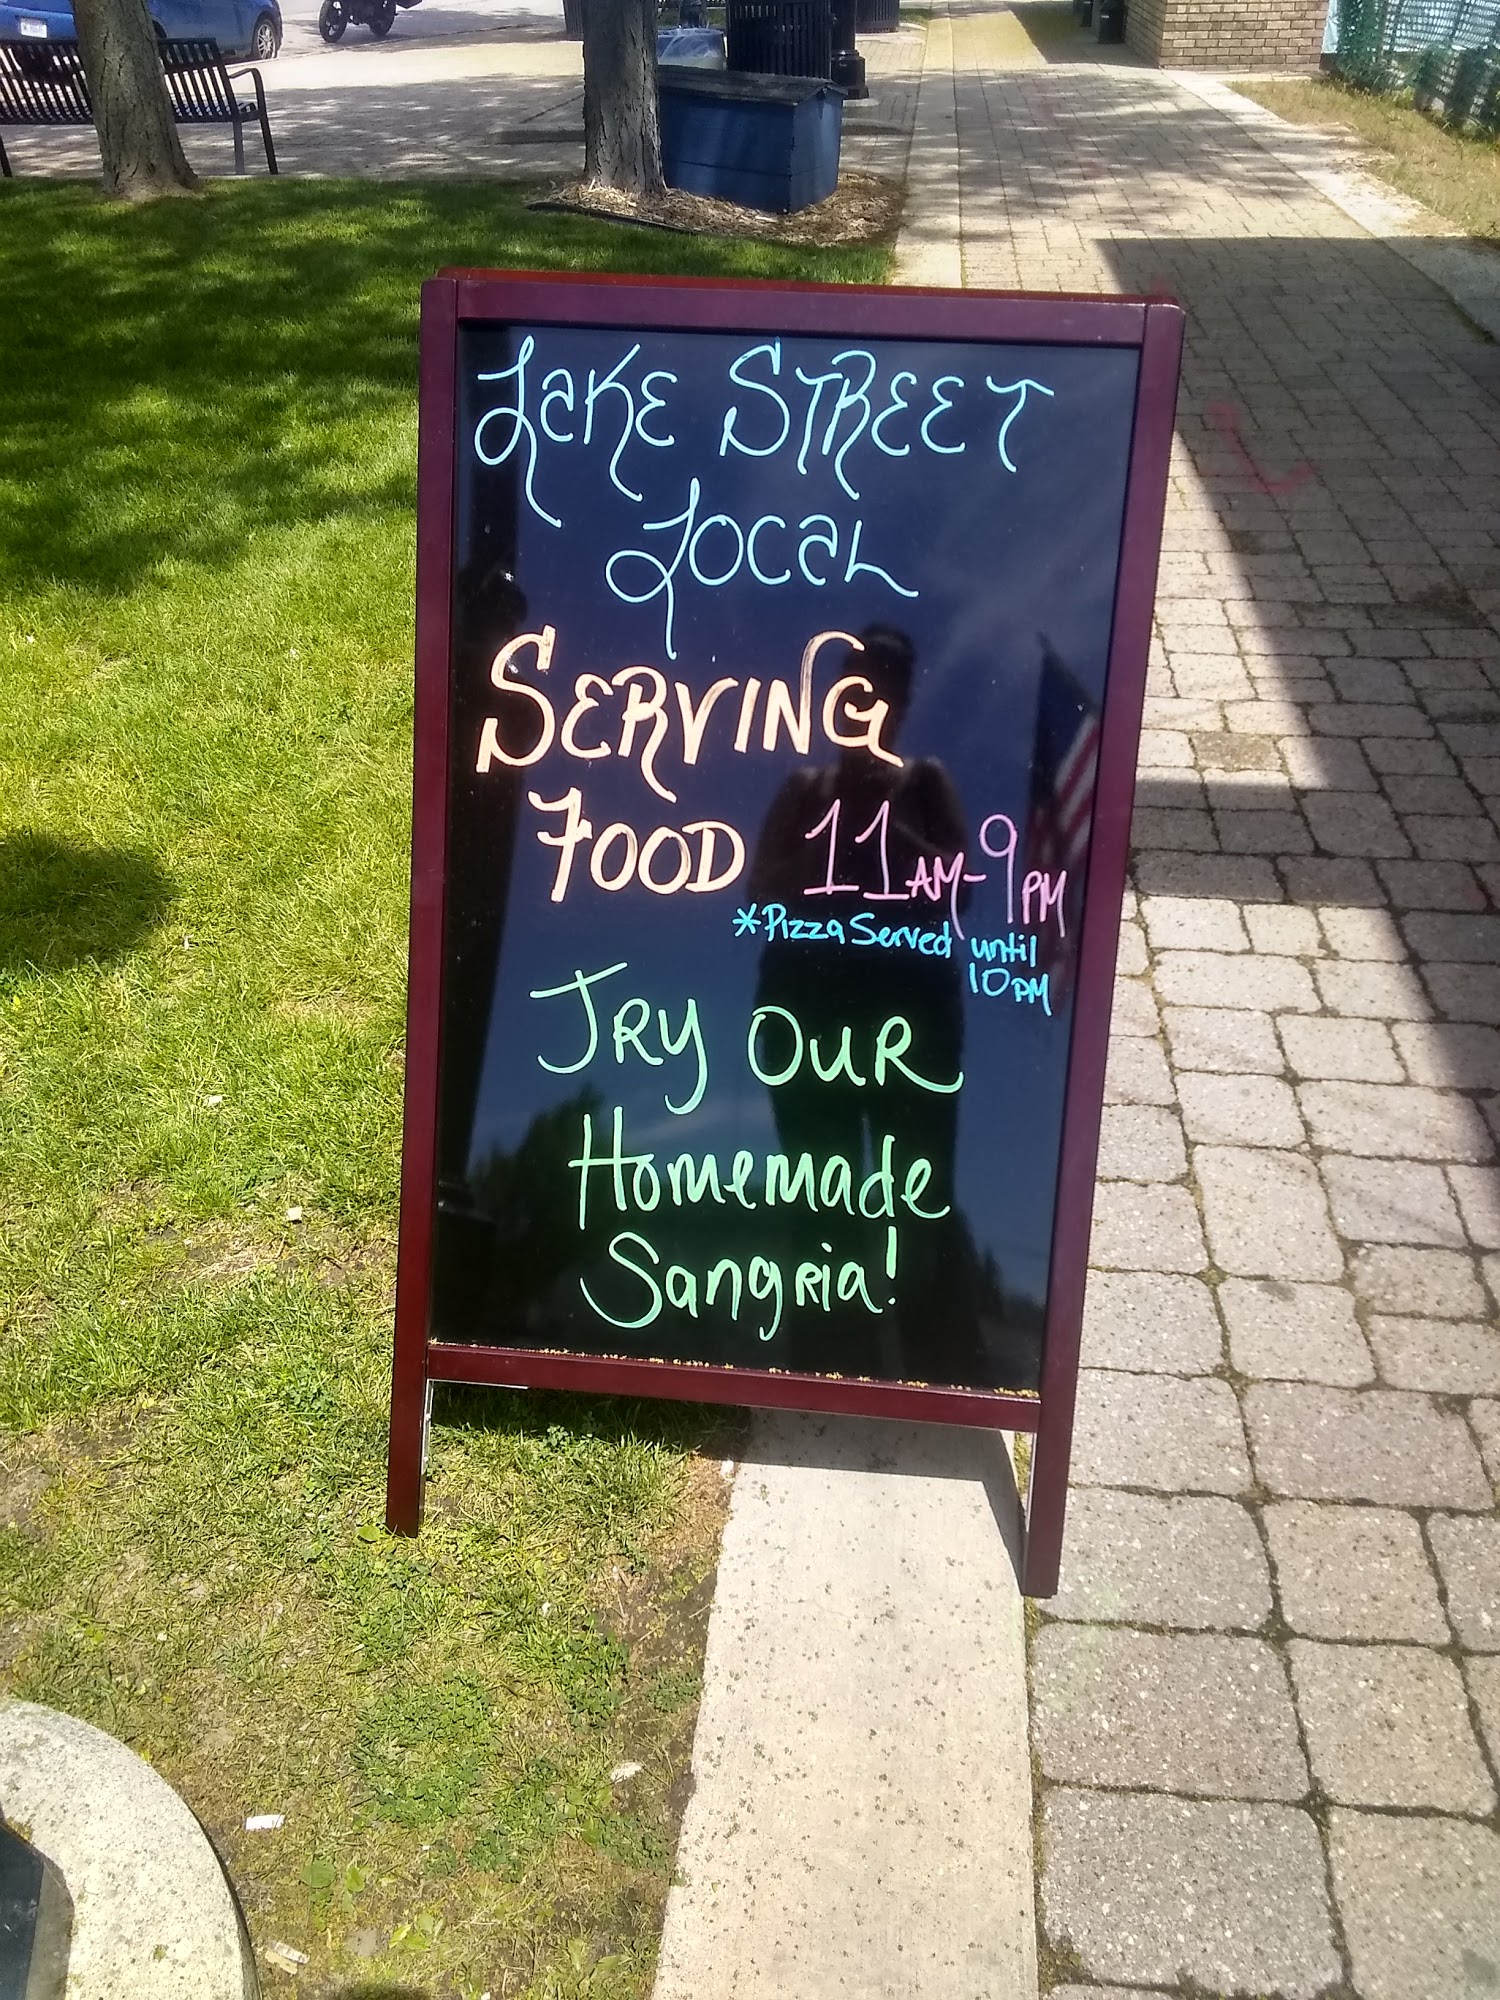 LAKE STREET
LOCAL
SERVING
FOOD 11AM-9PM
*Pizza Served until
10PM
TRY OUR
Homemade
SangRia!